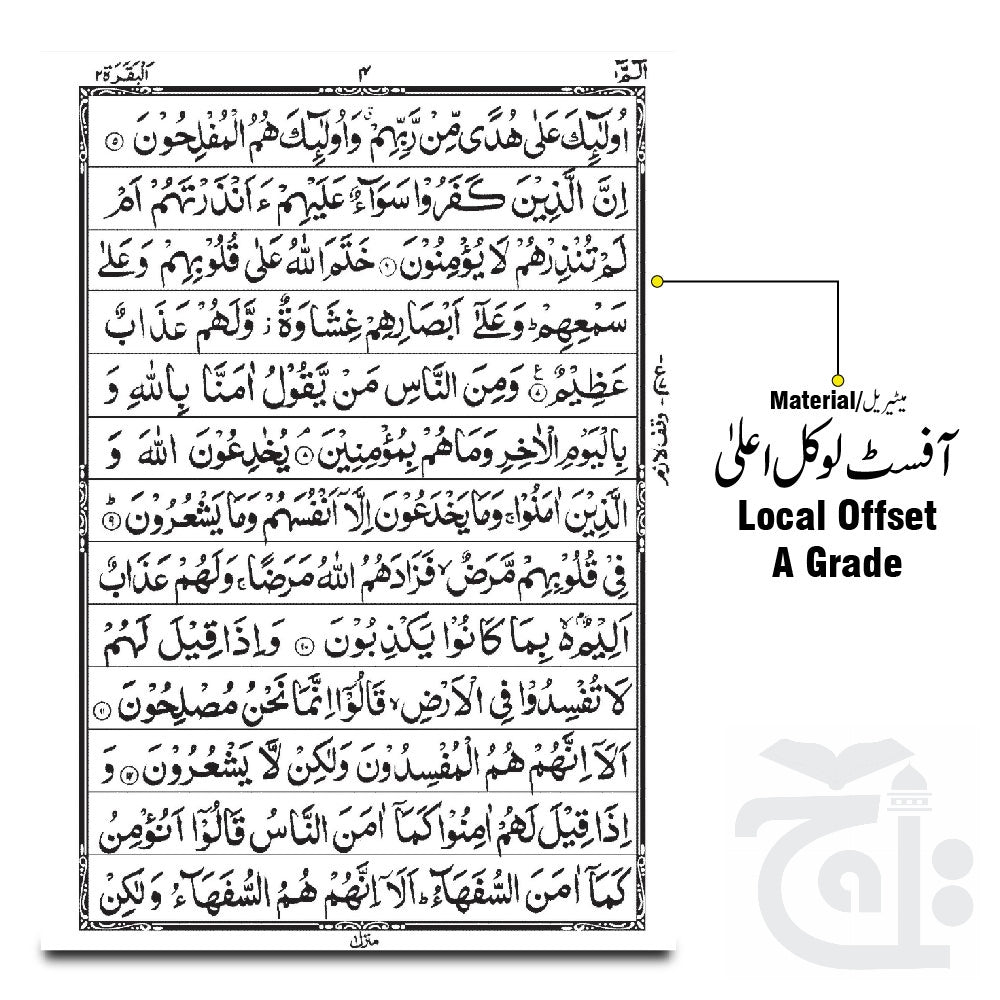 الٓمّٓ ١
٤
اَلْبَقَرَة ٢
اُولٰٓئِكَ عَلٰى هُدًى مِّنْ رَّبِّهِمْ ۙ وَاُولٰٓئِكَ هُمُ الْمُفْلِحُوْنَ ۝۵
اِنَّ الَّذِيْنَ كَفَرُوْا سَوَآءٌ عَلَيْهِمْ ءَاَنْذَرْتَهُمْ اَمْ
لَمْ تُنْذِرْهُمْ لَا يُؤْمِنُوْنَ ۝۶ خَتَمَ اللّٰهُ عَلٰى قُلُوْبِهِمْ وَعَلٰى
سَمْعِهِمْ ؕ وَعَلٰٓى اَبْصَارِهِمْ غِشَاوَةٌ ؗ وَّلَهُمْ عَذَابٌ
عَظِيْمٌ ۝ وَمِنَ النَّاسِ مَنْ يَّقُوْلُ اٰمَنَّا بِاللّٰهِ وَ
بِالْيَوْمِ الْاٰخِرِ وَمَا هُمْ بِمُؤْمِنِيْنَ ۝۸ يُخٰدِعُوْنَ اللّٰهَ وَ
الَّذِيْنَ اٰمَنُوْا ۚ وَمَا يَخْدَعُوْنَ اِلَّاۤ اَنْفُسَهُمْ وَمَا يَشْعُرُوْنَ ؕ۝۹
فِيْ قُلُوْبِهِمْ مَّرَضٌ ۙ فَزَادَهُمُ اللّٰهُ مَرَضًا ۚ وَلَهُمْ عَذَابٌ
اَلِيْمٌۢ ۙ۬ بِمَا كَانُوْا يَكْذِبُوْنَ ۝۱۰ وَاِذَا قِيْلَ لَهُمْ
لَا تُفْسِدُوْا فِي الْاَرْضِ ۙ قَالُوْٓا اِنَّمَا نَحْنُ مُصْلِحُوْنَ ۝۱۱
اَلَآ اِنَّهُمْ هُمُ الْمُفْسِدُوْنَ وَلٰكِنْ لَّا يَشْعُرُوْنَ ۝۱۲ وَ
اِذَا قِيْلَ لَهُمْ اٰمِنُوْا كَمَآ اٰمَنَ النَّاسُ قَالُوْٓا اَنُؤْمِنُ
كَمَآ اٰمَنَ السُّفَهَآءُ ؕ اَلَآ اِنَّهُمْ هُمُ السُّفَهَآءُ وَلٰكِنْ
منزل ١
وقف لازم
Material/میٹیریل
آفسٹ لوکل اعلیٰ
Local Offset
A Grade